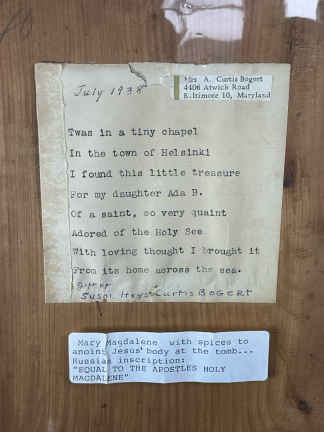 July 1938
Mrs A. Curtis Bogert
4406 Atwick Road
Baltimore 10, Maryland
Twas in a tiny chapel
In the town of Helsinki
I found this little treasure
For my daughter Ada B.
Of a saint, so very quaint
Adored of the Holy See
With loving thought I brought it
From its home across the sea.
Gift of
Curtis BOGERT
Mary Magdalene with spices to
anoint Jesus' body at the tomb...
Russian inscription:
"EQUAL TO THE APOSTLES HOLY
MAGDALENE"